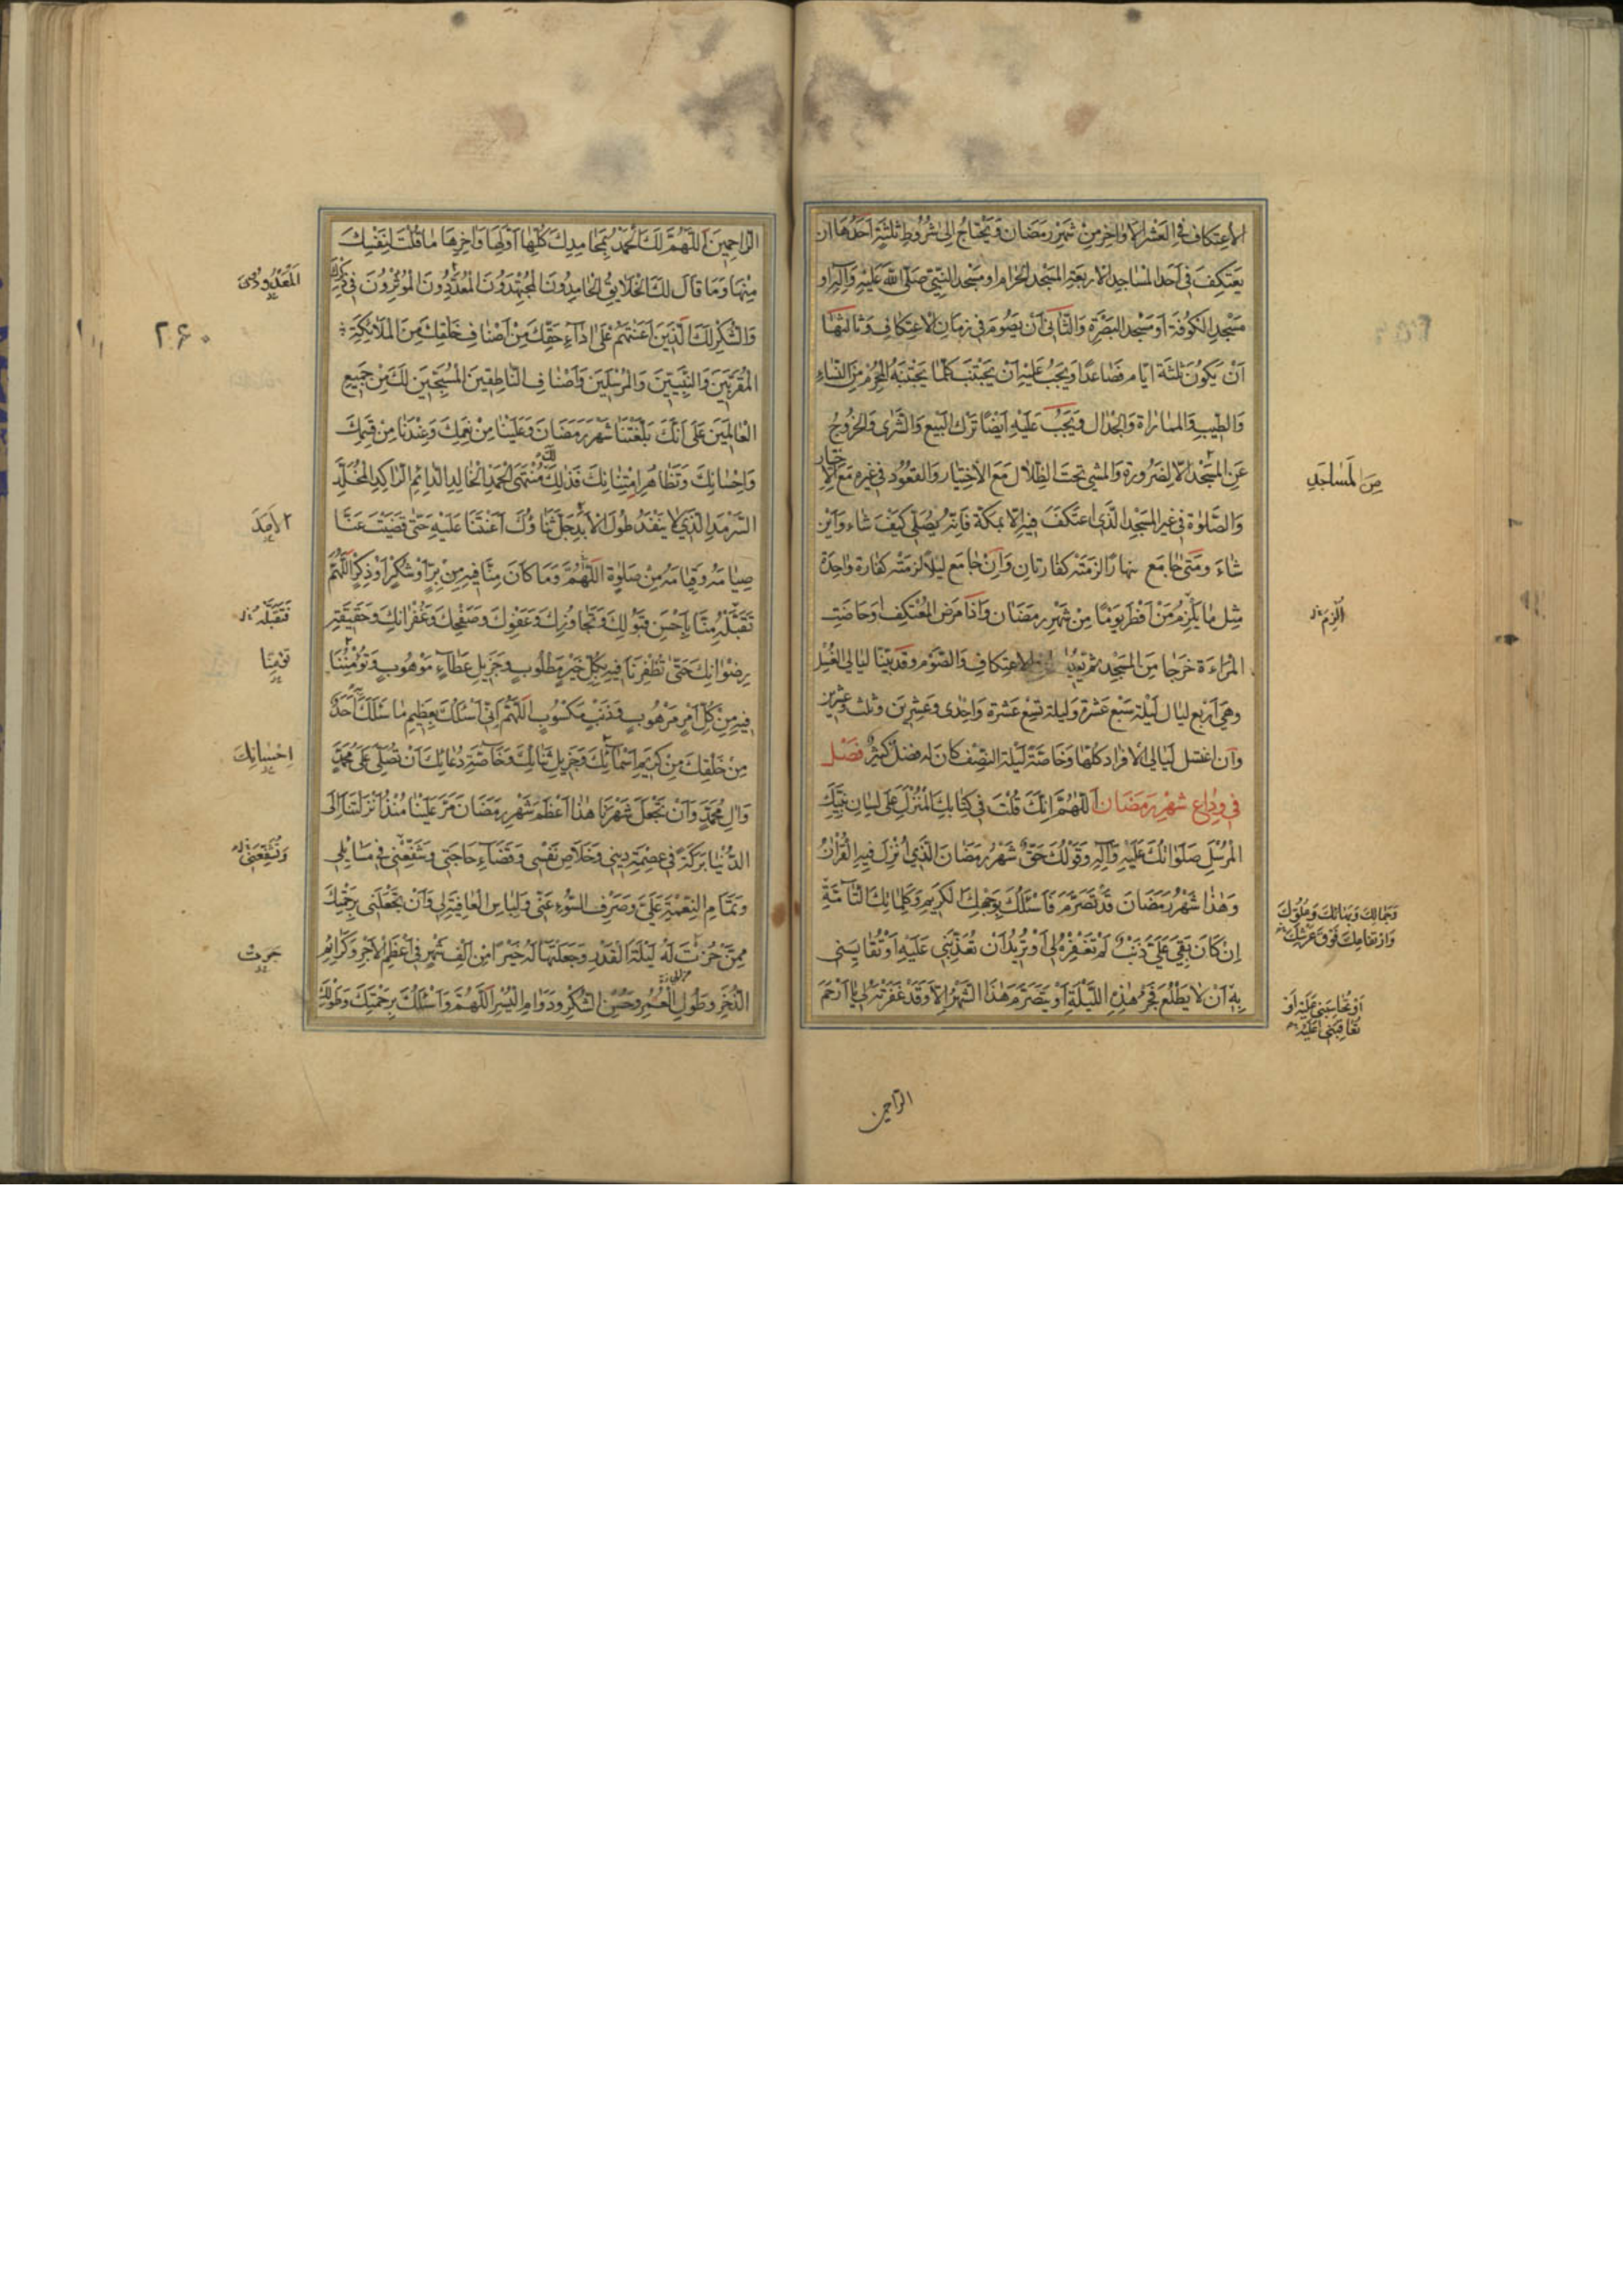 الاعتكاف في العشر الاواخر من شهر رمضان ويحتاج الى شروط ثلثة احدها ان
يعتكف في احد المساجد الاربعة المسجد الحرام او مسجد النبي صلى الله عليه وآله او
مسجد الكوفة او مسجد البصرة والثاني ان يصوم في زمان الاعتكاف وثالثها
ان يكون ثلثة ايام فصاعدا ويجب عليه ان يجتنب كلما يجتنبه المحرم من النساء
والطيب والمماراة والجدال ويجب عليه ايضا ترك البيع والشرى والخروج
عن المسجد الا لضرورة والمشي تحت الظلال مع الاختيار والقعود في غيره مع الاختيار
من المساجد
والصلوة في غير المسجد الذي اعتكف فيه الا بمكة فانه يصلي كيف شاء واين
شاء ومتى جامع نهارا لزمته كفارتان وان جامع ليلا لزمته كفارة واحدة
مثل ما يلزم من افطر يوما من شهر رمضان واذا مرض المعتكف او حاضت
المراءة خرجا من المسجد ثم الاعتكاف والصوم وقد بينا ليالي الغسل
وهي اربع ليال ليلة سبع عشرة وليلة تسع عشرة واحدى وعشرين وثلث وعشرين
وان اغتسل ليالي الافراد كلها وخاصة ليلة النصف كان له فضل كثير فصل
في وداع شهر رمضان اللهم انك قلت في كتابك المنزل على لسان نبيك
المرسل صلواتك عليه وآله وقولك حق شهر رمضان الذي انزل فيه القرآن
وهذا شهر رمضان قد تصرم فاسئلك بوجهك الكريم وكلماتك التامة
ان كان بقي علي ذنب لم تغفره لي او تريد ان تعذبني عليه او تقايسني
به ان لا يطلع فجر هذه الليلة او يتصرم هذا الشهر الا وقد غفرته لي يا ارحم
او تحاسبني عليه او
تعاقبني عليه
الراحمين
۲۶۰
الراحمين اللهم لك الحمد بمحامدك كلها اولها وآخرها ما قلت لنفسك
منها وما قال لك الخلايق الحامدون المجتهدون المعددون الموثرون في ذكرك
والشكر لك الذين اعنتهم على اداء حقك من اصناف خلقك من الملائكة
المقربين والنبيين والمرسلين واصناف الناطقين المسبحين لك من جميع
العالمين على انك بلغتنا شهر رمضان وعلينا من نعمك وعندنا من قسمك
واحسانك وتظاهر امتنانك فذلك لك منتهى الحمد الخالد الدائم الراكد المخلد
السرمد الذي لا ينفد طول الابد جل ثناؤك اعنتنا عليه حتى قضيت عنا
الامد
صيامه وقيامه من صلوة اللهم وما كان منا فيه من بر او شكر او ذكر اللهم
تقبله منا باحسن قبولك وتجاوزك وعفوك وصفحك وغفرانك وحقيقة
فتقبله
رضوانك حتى تظفرنا فيه بكل خير مطلوب وجزيل عطاء موهوب وتؤمننا
فيه من كل امر مرهوب وذنب مكسوب اللهم اني اسئلك بعظيم ما سئلك احد
من خلقك من كريم اسمائك وجزيل ثنائك وخاصة دعائك ان تصلي على محمد
احسانك
وال محمد وان تجعل شهرنا هذا اعظم شهر رمضان مر علينا منذ انزلتنا الى
الدنيا بركة في عصمة ديني وخلاص نفسي وقضاء حاجتي وتشفعني في مسايلي
وتمام النعمة علي وصرف السوء عني ولباس العافية لي وان تجعلني برحمتك
ممن حزت له ليلة القدر وجعلتها له خيرا من الف شهر في اعظم الاجر وكرائم
الذخر وطول العمر وحسن الشكر ودوام اليسر اللهم واسئلك برحمتك وطولك